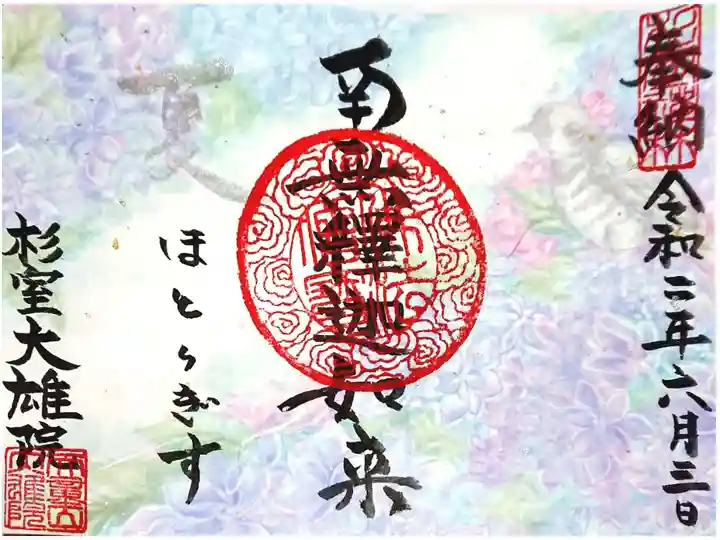 奉納
令和二年六月三日
南無釋迦如来
夏
ほとゝぎす
杉室大雄院